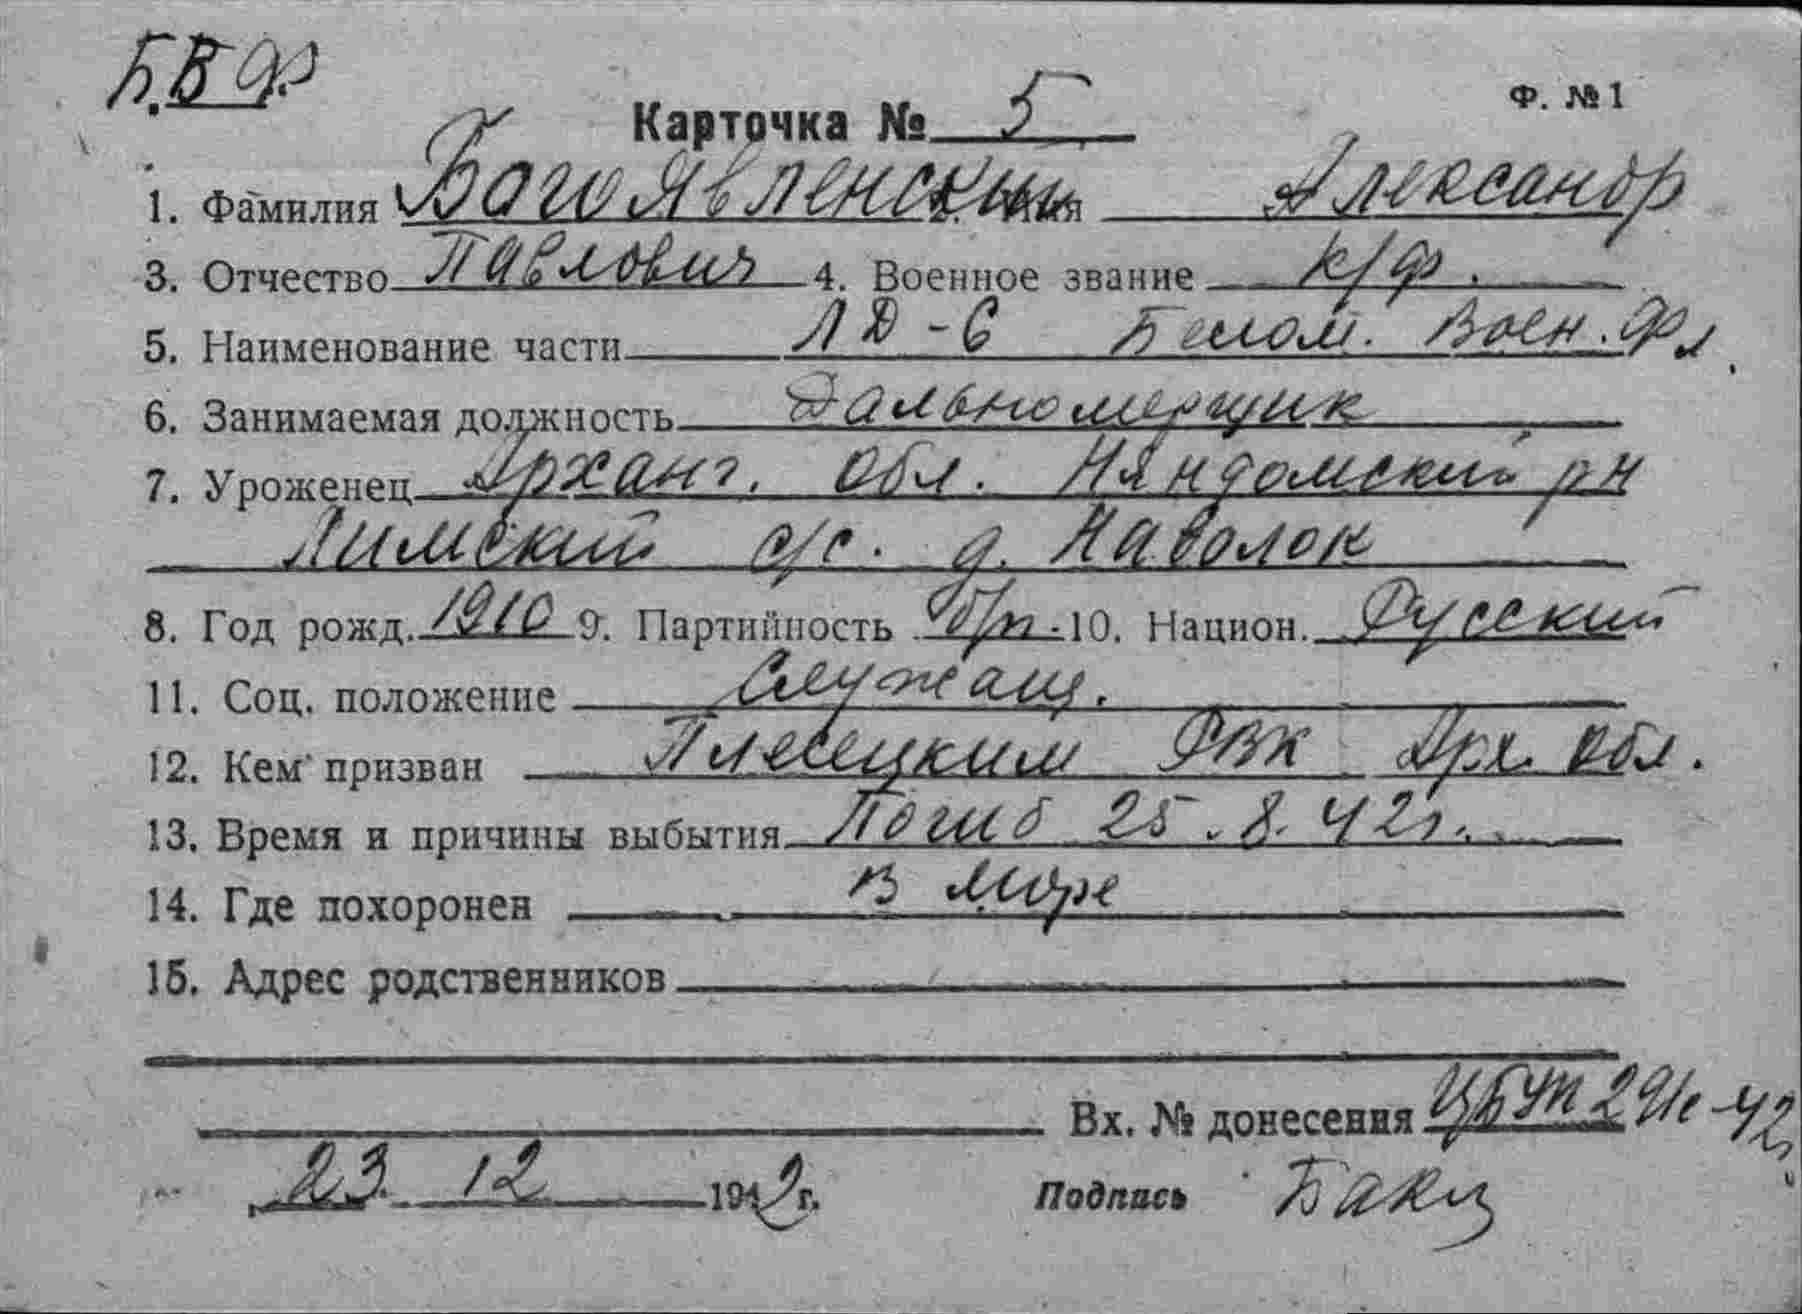 Б.В.Ф
Ф. №1
Карточка № 5
1. Фамилия Богоявленский Имя Александр
3. Отчество Павлович 4. Военное звание к/ф.
5. Наименование части ЛД-6 Белом. Воен. Фл.
6. Занимаемая должность Дальномерщик
7. Уроженец Арханг. обл. Няндомский р-н
Лимский с/с. д. Наволок
8. Год рожд. 1910 9. Партийность б/п. 10. Национ. Русский
11. Соц. положение Служащ.
12. Кем призван Плесецким РВК Арх. обл.
13. Время и причины выбытия Погиб 25.8.42г.
14. Где похоронен в море
15. Адрес родственников
Вх. № донесения 291с-42
23. 12 1942г. Подпись